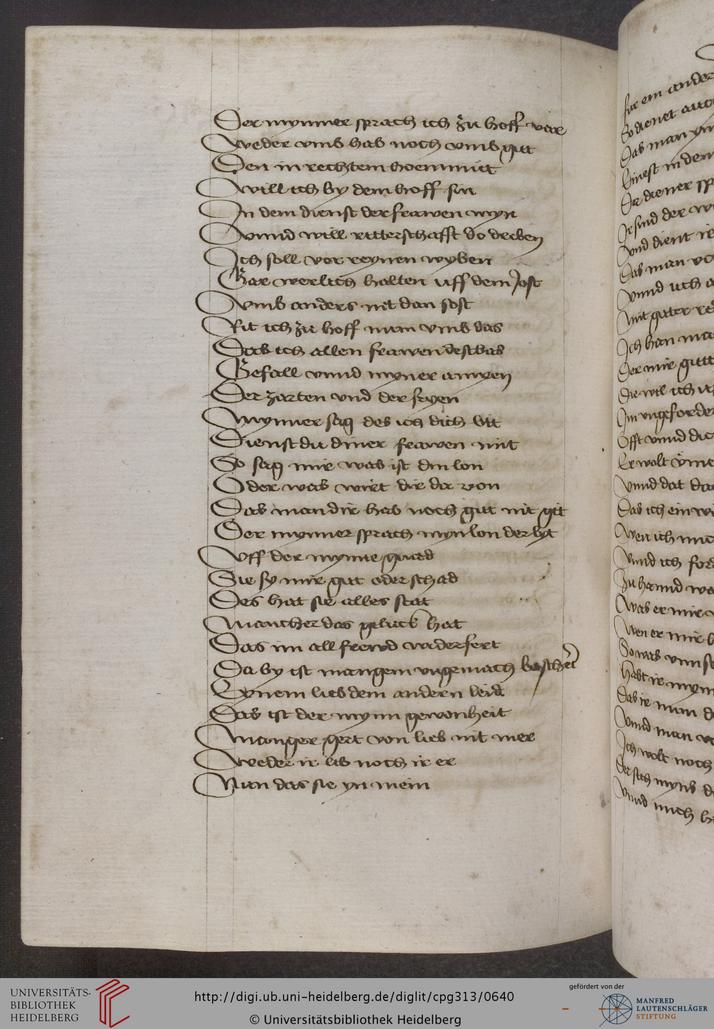 Der mynner sprach ich zu hoff var
Weder vmb hab noch vmb gut
Den in rechtem hoemmut
Will ich by dem hoff sin
In dem dienst der frawen myn
Vnnd will ritterschafft do driben
Ich soll vor reynen wyben
Gar werlich halten uff dem Jost
Vmb anders nit dan sost
Rit ich zu hoff nun vmb das
Das ich allen frawen destbas
Gefall vnnd myner amyen
Der zarten vnd der fryen
Mynner sag des ich dich bit
Dienst du diner frawen mit
So sag mir was ist din lon
Oder was wirt dir da von
Das man dir hab noch gut nit git
Der mynner sprach myn lon der lyt
Vff der mynne gnad
Sie sy mir gut oder schad
Des hat sie alles stat
Mancher das geluck hat
Das im all freud widerfert
Da by ist mangem vngemach beschert
Eynem lieb dem andern leid
Das ist der mynn gewonheit
Manger gert von lieb nit mer
Weder ir lib noch ir er
Nun das sie yn mein
für ein ander
So dienet
Das man
Der diener
Ir sind der
Vnd dient
Das man
Vnnd uch
mit guter
Ich han
Der mir gutt
Die wil ich
Im vngeforder
Offt vnnd
Er wolt
Vnnd dat
Das ich ein
Wen ich
Vnnd ich
Zu hannd
Was er mir
Wen er mir
So was
Habt ir
Das ir nun
Vnnd man
Ich wolt noch
Vnnd mich
UNIVERSITÄTS-
BIBLIOTHEK
HEIDELBERG
http://digi.ub.uni-heidelberg.de/diglit/cpg313/0640
© Universitätsbibliothek Heidelberg
gefördert von der
MANFRED
LAUTENSCHLÄGER
STIFTUNG